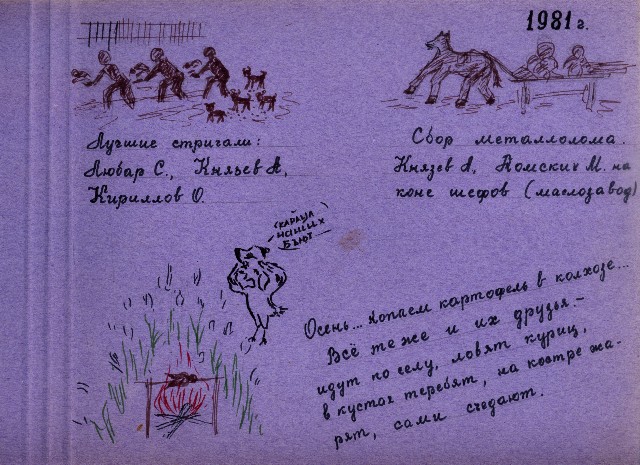 1981 г.
Лучшие стригали:
Любар С., Князев А,
Кириллов О.
Сбор металлолома.
Князев А, Томских М. на
коне шефов (маслозавод)
КАРАУЛ
НАШИХ
БЬЮТ
Осень... копаем картофель в колхозе...
Всё те же и их друзья. –
идут по селу, ловят куриц,
в кустах теребят, на костре жа-
рят, сами съедают.